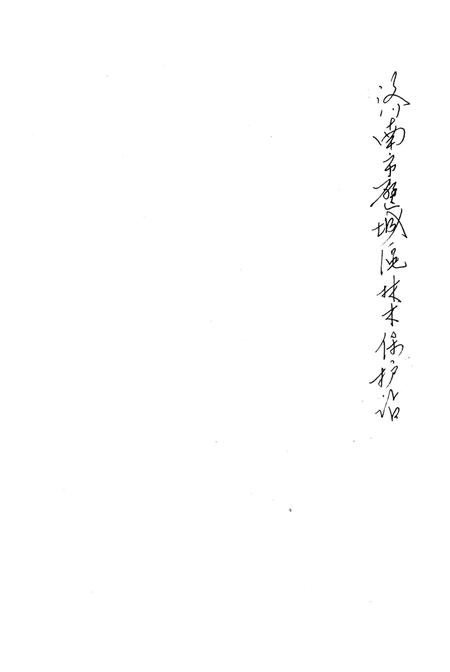 济南市历城区林木保护站